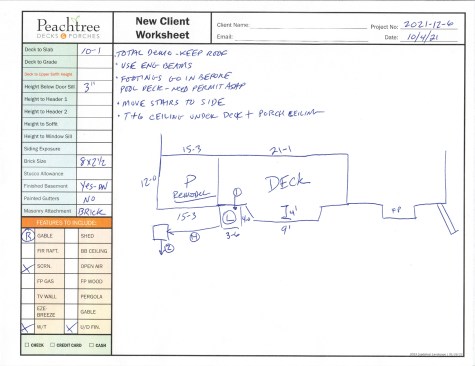 Peachtree
DECKS & PORCHES
New Client
Worksheet
Client Name:
Project No: 2021-12-6
Email:
Date: 10/4/21
Deck to Slab 10-1
Deck to Grade
Height Below Door Sill 3"
Height to Header 1
Height to Header 2
Height to Soffit
Height to Window Sill
Siding Exposure
Brick Size 8x2½
Stucco Allowance
Finished Basement Yes-
Painted Gutters NO
Masonry Attachment BRICK
FEATURES TO INCLUDE:
R GABLE SHED
FIR RAFT. BB CEILING
X SCRN. OPEN AIR
FP GAS FP WOOD
TV WALL PERGOLA
EZE-BREEZE GABLE
X W/T X U/D FIN.
CHECK CREDIT CARD CASH
TOTAL DEMO - KEEP ROOF
• USE ENG BEAMS
• FOOTINGS GO IN BEFORE
POOL DECK - NEED PERMIT ASAP
• MOVE STAIRS TO SIDE
• T+G CEILING UNDER DECK + PORCH CEILING
15-3 21-1
12-0
P
REMODEL
DECK
15-3
L
3-6
4'
9'
FP